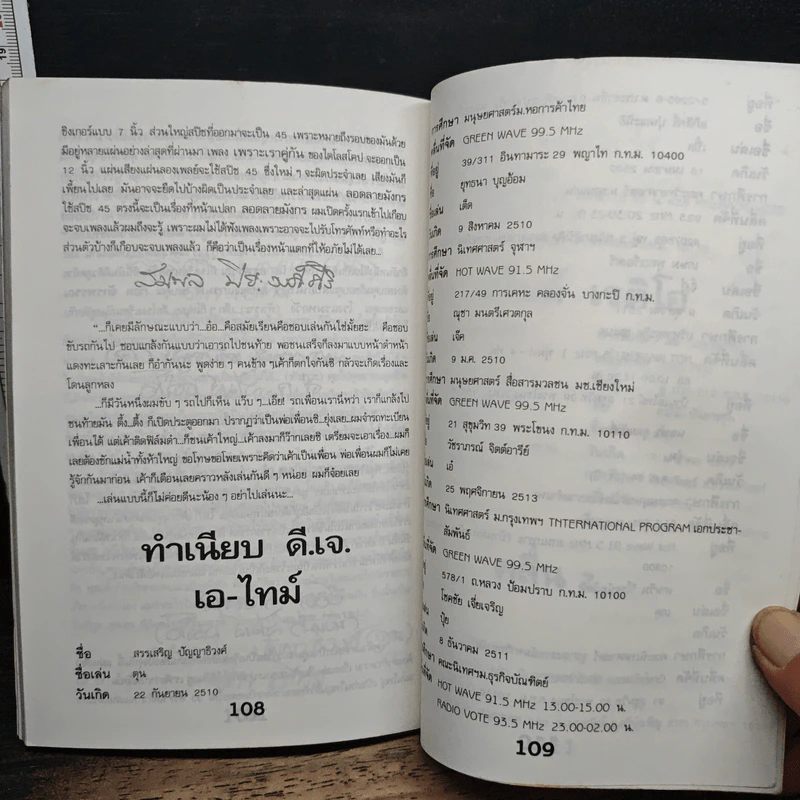 ซิงเกอร์แบบ 7 นิ้ว ส่วนใหญ่สปีชที่ออกมาจะเป็น 45 เพราะหมายถึงรอบของมันด้วย
มีอยู่หลายแผ่นอย่างล่าสุดที่ผ่านมา เพลง เพราะเราคู่กัน ของไดโลสไคป จะออกเป็น
12 นิ้ว แผ่นเสียงแผ่นลองเพลย์จะใช้สปีช 45 ซึ่งใหม่ ๆ จะผิดประจำเลย เสียงมันก็
เพี้ยนไปเลย มันอาจจะยืดไปบ้างผิดเป็นประจำเลย และล่าสุดแผ่น ลอดลายมังกร
ใช้สปีช 45 ตรงนี้จะเป็นเรื่องที่หน้าแปลก ลอดลายมังกร ผมเปิดครั้งแรกเข้าไปเกือบ
จะจบเพลงแล้วผมถึงจะรู้ เพราะผมไม่ได้ฟังเพลงเพราะอาจจะไปรับโทรศัพท์หรือทำอะไร
ส่วนตัวบ้างก็เกือบจะจบเพลงแล้ว ก็คือว่าเป็นเรื่องหน้าแตกที่ให้อภัยไม่ได้เลย...
"...ก็เคยมีลักษณะแบบว่า...อ๋อ...คือสมัยเรียนคือชอบเล่นกันใช่มั้ยฮะ คือชอบ
ขับรถกันไป ชอบแกล้งกันแบบว่าเอารถไปชนท้าย พอชนเสร็จก็ลงมาแบบหน้าดำหน้า
แดงทะเลาะกันเลย ก็อำกันนะ พูดง่าย ๆ คนข้าง ๆเค้าก็ตกใจกันซิ กลัวจะเกิดเรื่องและ
โดนลูกหลง
...ก็มีวันหนึ่งผมขับ ๆ รถไปก็เห็น แว๊บ ๆ...เอ๊ย! รถเพื่อนเรานี่หว่า เราก็แกล้งไป
ชนท้ายมัน ตึ้ง...ตึ้ง ก็เปิดประตูออกมา ปรากฏว่าเป็นพ่อเพื่อนซิ...ยุ่งเลย...ผมจำรถทะเบียน
เพื่อนได้ แต่เค้าติดฟิล์มดำ...ก็ชนเค้าใหญ่...เค้าลงมาก็ว๊ากเลยซิ เตรียมจะเอาเรื่อง...ผมก็
เลยต้องชักแม่น้ำทั้งห้าใหญ่ ขอโทษขอโพยเพราะคิดว่าเค้าเป็นเพื่อน พ่อเพื่อนผมก็ไม่เคย
รู้จักกันมาก่อน เค้าก็เตือนเลยคราวหลังเล่นกันดี ๆ หน่อย ผมก็จ๋อยเลย
...เล่นแบบนี้ก็ไม่ค่อยดีนะน้อง ๆ อย่าไปเล่นนะ...
ทำเนียบ ดี.เจ.
เอ-ไทม์
ชื่อ สรรเสริญ ปัญญาธิวงศ์
ชื่อเล่น ตุน
วันเกิด 22 กันยายน 2510
108
การศึกษา มนุษยศาสตร์ม.หอการค้าไทย
คลื่นที่จัด GREEN WAVE 99.5 MHz
39/311 อินทามาระ 29 พญาไท ก.ท.ม. 10400
ยุทธนา บุญอ้อม
เต็ด
9 สิงหาคม 2510
นิเทศศาสตร์ จุฬาฯ
HOT WAVE 91.5 MHz
217/49 การเคหะ คลองจั่น บางกะปิ ก.ท.ม.
ณุชา มนตรีเศวตกุล
เจ๊ค
9 ม.ค. 2510
มนุษยศาสตร์ สื่อสารมวลชน มช.เชียงใหม่
GREEN WAVE 99.5 MHz
21 สุขุมวิท 39 พระโขนง ก.ท.ม. 10110
วัชราภรณ์ จิตต์อารีย์
เอ๋
25 พฤศจิกายน 2513
นิเทศศาสตร์ ม.กรุงเทพฯ TNTERNATIONAL PROGRAM เอกประชา-
สัมพันธ์
GREEN WAVE 99.5 MHz
578/1 ถ.หลวง ป้อมปราบ ก.ท.ม. 10100
โชคชัย เจี่ยเจริญ
ปุ๊ย
8 ธันวาคม 2511
คณะนิเทศฯม.ธุรกิจบัณฑิตย์
HOT WAVE 91.5 MHz 13.00-15.00 น.
RADIO VOTE 93.5 MHz 23.00-02.00 น.
109